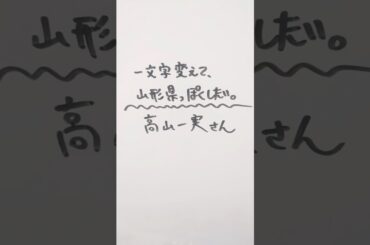 一文字変えて、
山形県っぽくしだい。
高山一実さん